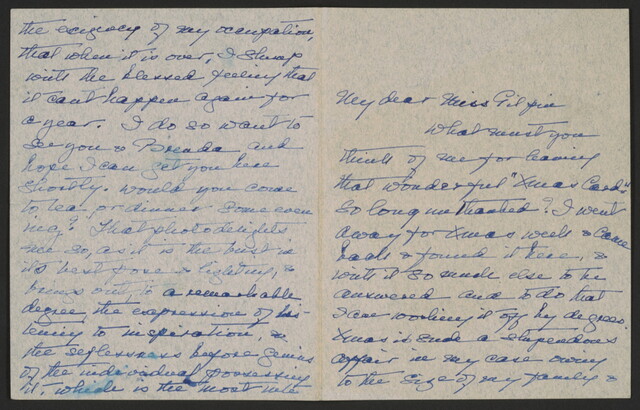 My dear Miss Gilpin
What must you
think of me for leaving
that wonderful "Xmas Card"
so long unthanked? I went
away for Xmas week & came
back & found it here, &
with so much else to be
answered and to do that
I am working it off by degrees.
Xmas is such a stupendous
affair in my case owing
to the size of my family &
the exigency of my occupation,
that when it is over, I sleep
with the blessed feeling that
it can't happen again for
a year. I do so want to
see you & Brenda and
hope I can get you here
shortly. Would you come
to tea or dinner some even
ing? That photo delights
me so, as it is the bust in
it's best pose & lighting, &
brings out to a remarkable
degree the expression of lis-
tening to inspiration, &
the selflessness before genius
of the individual possessing
it. which is the most